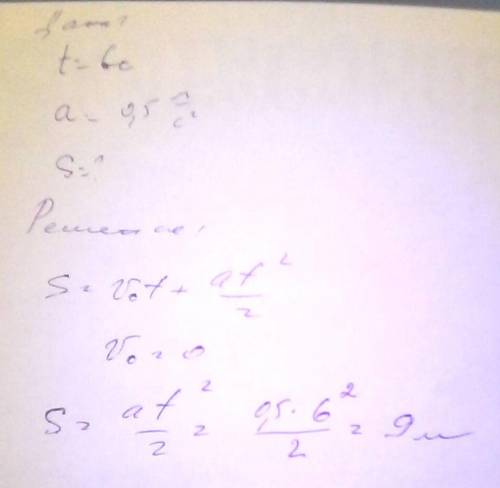 Дано:
t = 6c
a = 0,5 м/с²
S = ?
Решение:
S = v₀t + at²/2
v₀ = 0
S = at²/2 = 0,5·6²/2 = 9 м